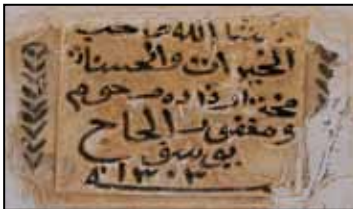 الله صاحب
الخيرات والحسنات
مرحوم
ومغفور الحاج
يوسف
١٣٠٣